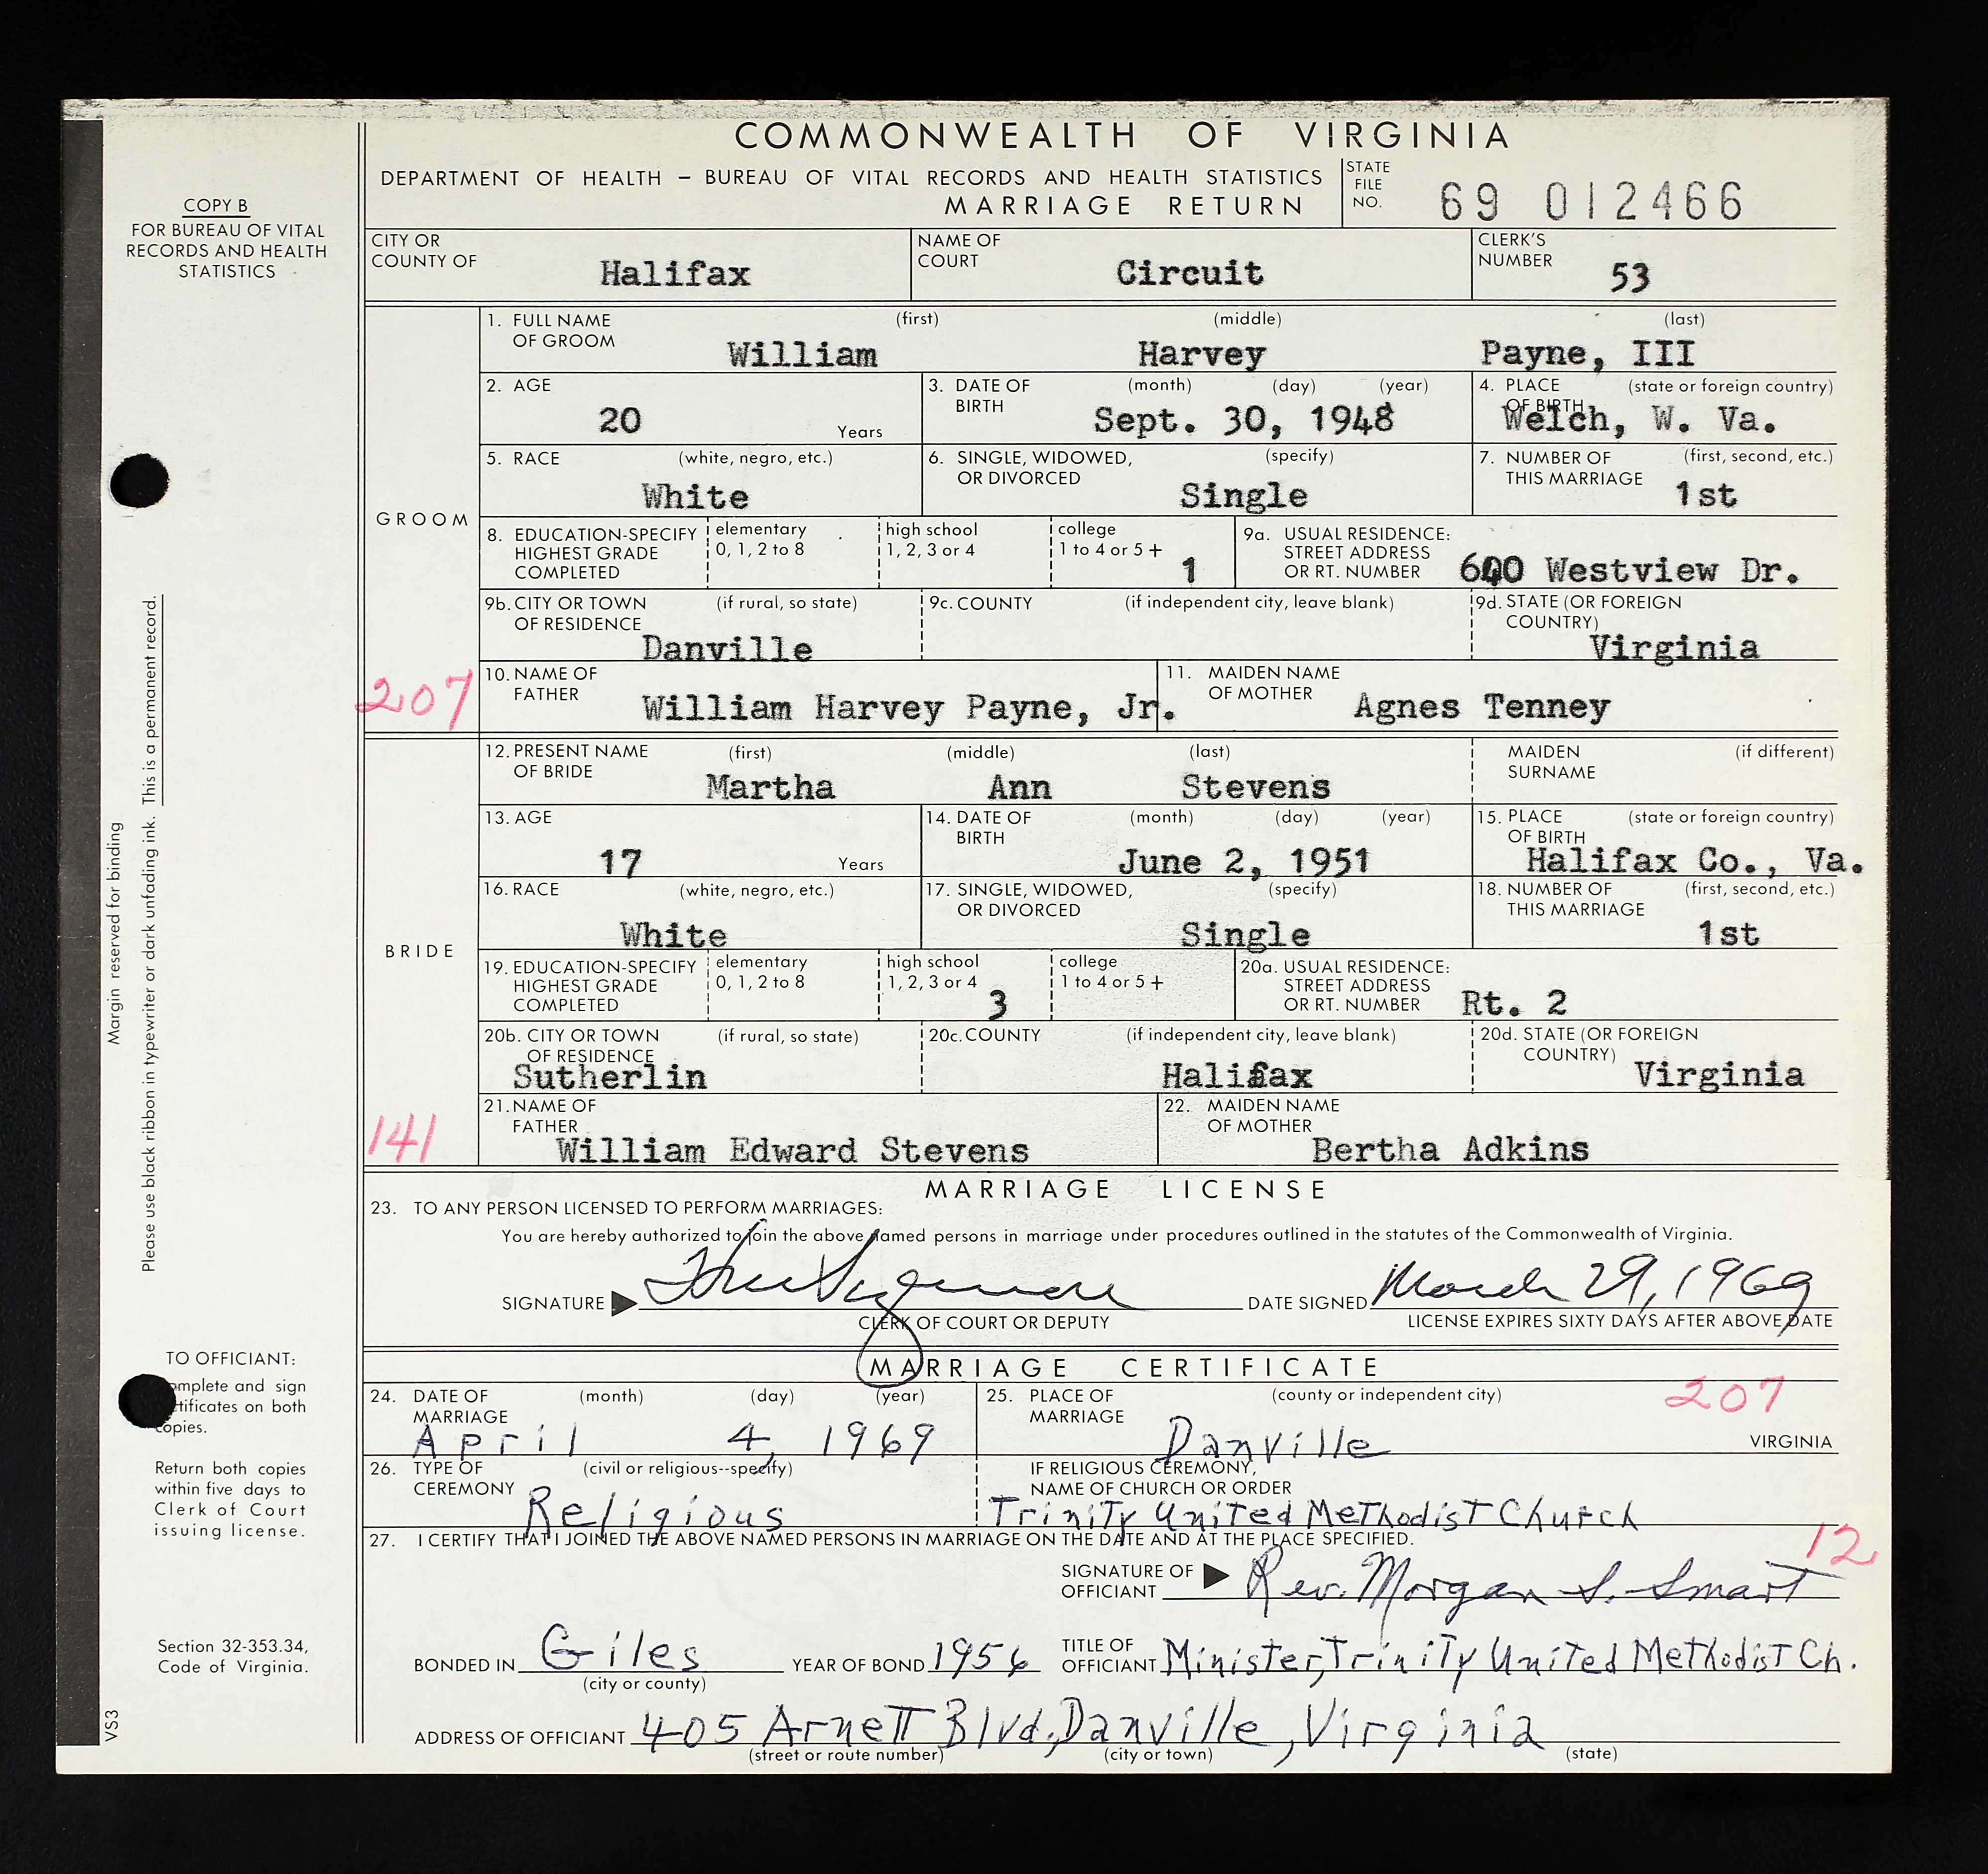 COMMONWEALTH OF VIRGINIA
DEPARTMENT OF HEALTH – BUREAU OF VITAL RECORDS AND HEALTH STATISTICS
MARRIAGE RETURN
STATE FILE NO. 69 012466
COPY B
FOR BUREAU OF VITAL
RECORDS AND HEALTH
STATISTICS
CITY OR COUNTY OF Halifax NAME OF COURT Circuit CLERK'S NUMBER 53
GROOM
1. FULL NAME OF GROOM (first) William (middle) Harvey (last) Payne, III
2. AGE 20 Years 3. DATE OF BIRTH (month) (day) (year) Sept. 30, 1948 4. PLACE OF BIRTH (state or foreign country) Welch, W. Va.
5. RACE (white, negro, etc.) White 6. SINGLE, WIDOWED, OR DIVORCED (specify) Single 7. NUMBER OF THIS MARRIAGE (first, second, etc.) 1st
8. EDUCATION-SPECIFY HIGHEST GRADE COMPLETED elementary 0, 1, 2 to 8 high school 1, 2, 3 or 4 college 1 to 4 or 5+ 1 9a. USUAL RESIDENCE: STREET ADDRESS OR RT. NUMBER Westview Dr.
9b. CITY OR TOWN OF RESIDENCE (if rural, so state) Danville 9c. COUNTY (if independent city, leave blank) 9d. STATE (OR FOREIGN COUNTRY) Virginia
207
10. NAME OF FATHER William Harvey Payne, Jr. 11. MAIDEN NAME OF MOTHER Agnes Tenney
BRIDE
12. PRESENT NAME OF BRIDE (first) Martha (middle) Ann (last) Stevens MAIDEN SURNAME (if different)
13. AGE 17 Years 14. DATE OF BIRTH (month) (day) (year) June 2, 1951 15. PLACE OF BIRTH (state or foreign country) Halifax Co., Va.
16. RACE (white, negro, etc.) White 17. SINGLE, WIDOWED, OR DIVORCED (specify) Single 18. NUMBER OF THIS MARRIAGE (first, second, etc.) 1st
19. EDUCATION-SPECIFY HIGHEST GRADE COMPLETED elementary 0, 1, 2 to 8 high school 1, 2, 3 or 4 3 college 1 to 4 or 5+ 20a. USUAL RESIDENCE: STREET ADDRESS OR RT. NUMBER Rt. 2
20b. CITY OR TOWN OF RESIDENCE (if rural, so state) Sutherlin 20c. COUNTY (if independent city, leave blank) Halifax 20d. STATE (OR FOREIGN COUNTRY) Virginia
141
21. NAME OF FATHER William Edward Stevens 22. MAIDEN NAME OF MOTHER Bertha Adkins
MARRIAGE LICENSE
23. TO ANY PERSON LICENSED TO PERFORM MARRIAGES:
You are hereby authorized to join the above named persons in marriage under procedures outlined in the statutes of the Commonwealth of Virginia.
SIGNATURE DATE SIGNED March 29, 1969
CLERK OF COURT OR DEPUTY LICENSE EXPIRES SIXTY DAYS AFTER ABOVE DATE
MARRIAGE CERTIFICATE
24. DATE OF MARRIAGE (month) (day) (year) April 4, 1969 25. PLACE OF MARRIAGE (county or independent city) Danville 207 VIRGINIA
26. TYPE OF CEREMONY (civil or religious--specify) Religious IF RELIGIOUS CEREMONY, NAME OF CHURCH OR ORDER Trinity United Methodist Church
27. I CERTIFY THAT I JOINED THE ABOVE NAMED PERSONS IN MARRIAGE ON THE DATE AND AT THE PLACE SPECIFIED.
12
SIGNATURE OF OFFICIANT Rev. Morgan S. Smart
BONDED IN Giles (city or county) YEAR OF BOND 1956 TITLE OF OFFICIANT Minister, Trinity United Methodist Ch.
ADDRESS OF OFFICIANT 405 Arnett Blvd., Danville, Virginia
(street or route number) (city or town) (state)
Margin reserved for binding
Please use black ribbon in typewriter or dark unfading ink. This is a permanent record.
TO OFFICIANT:
omplete and sign
tificates on both
copies.
Return both copies
within five days to
Clerk of Court
issuing license.
Section 32-353.34,
Code of Virginia.
VS3